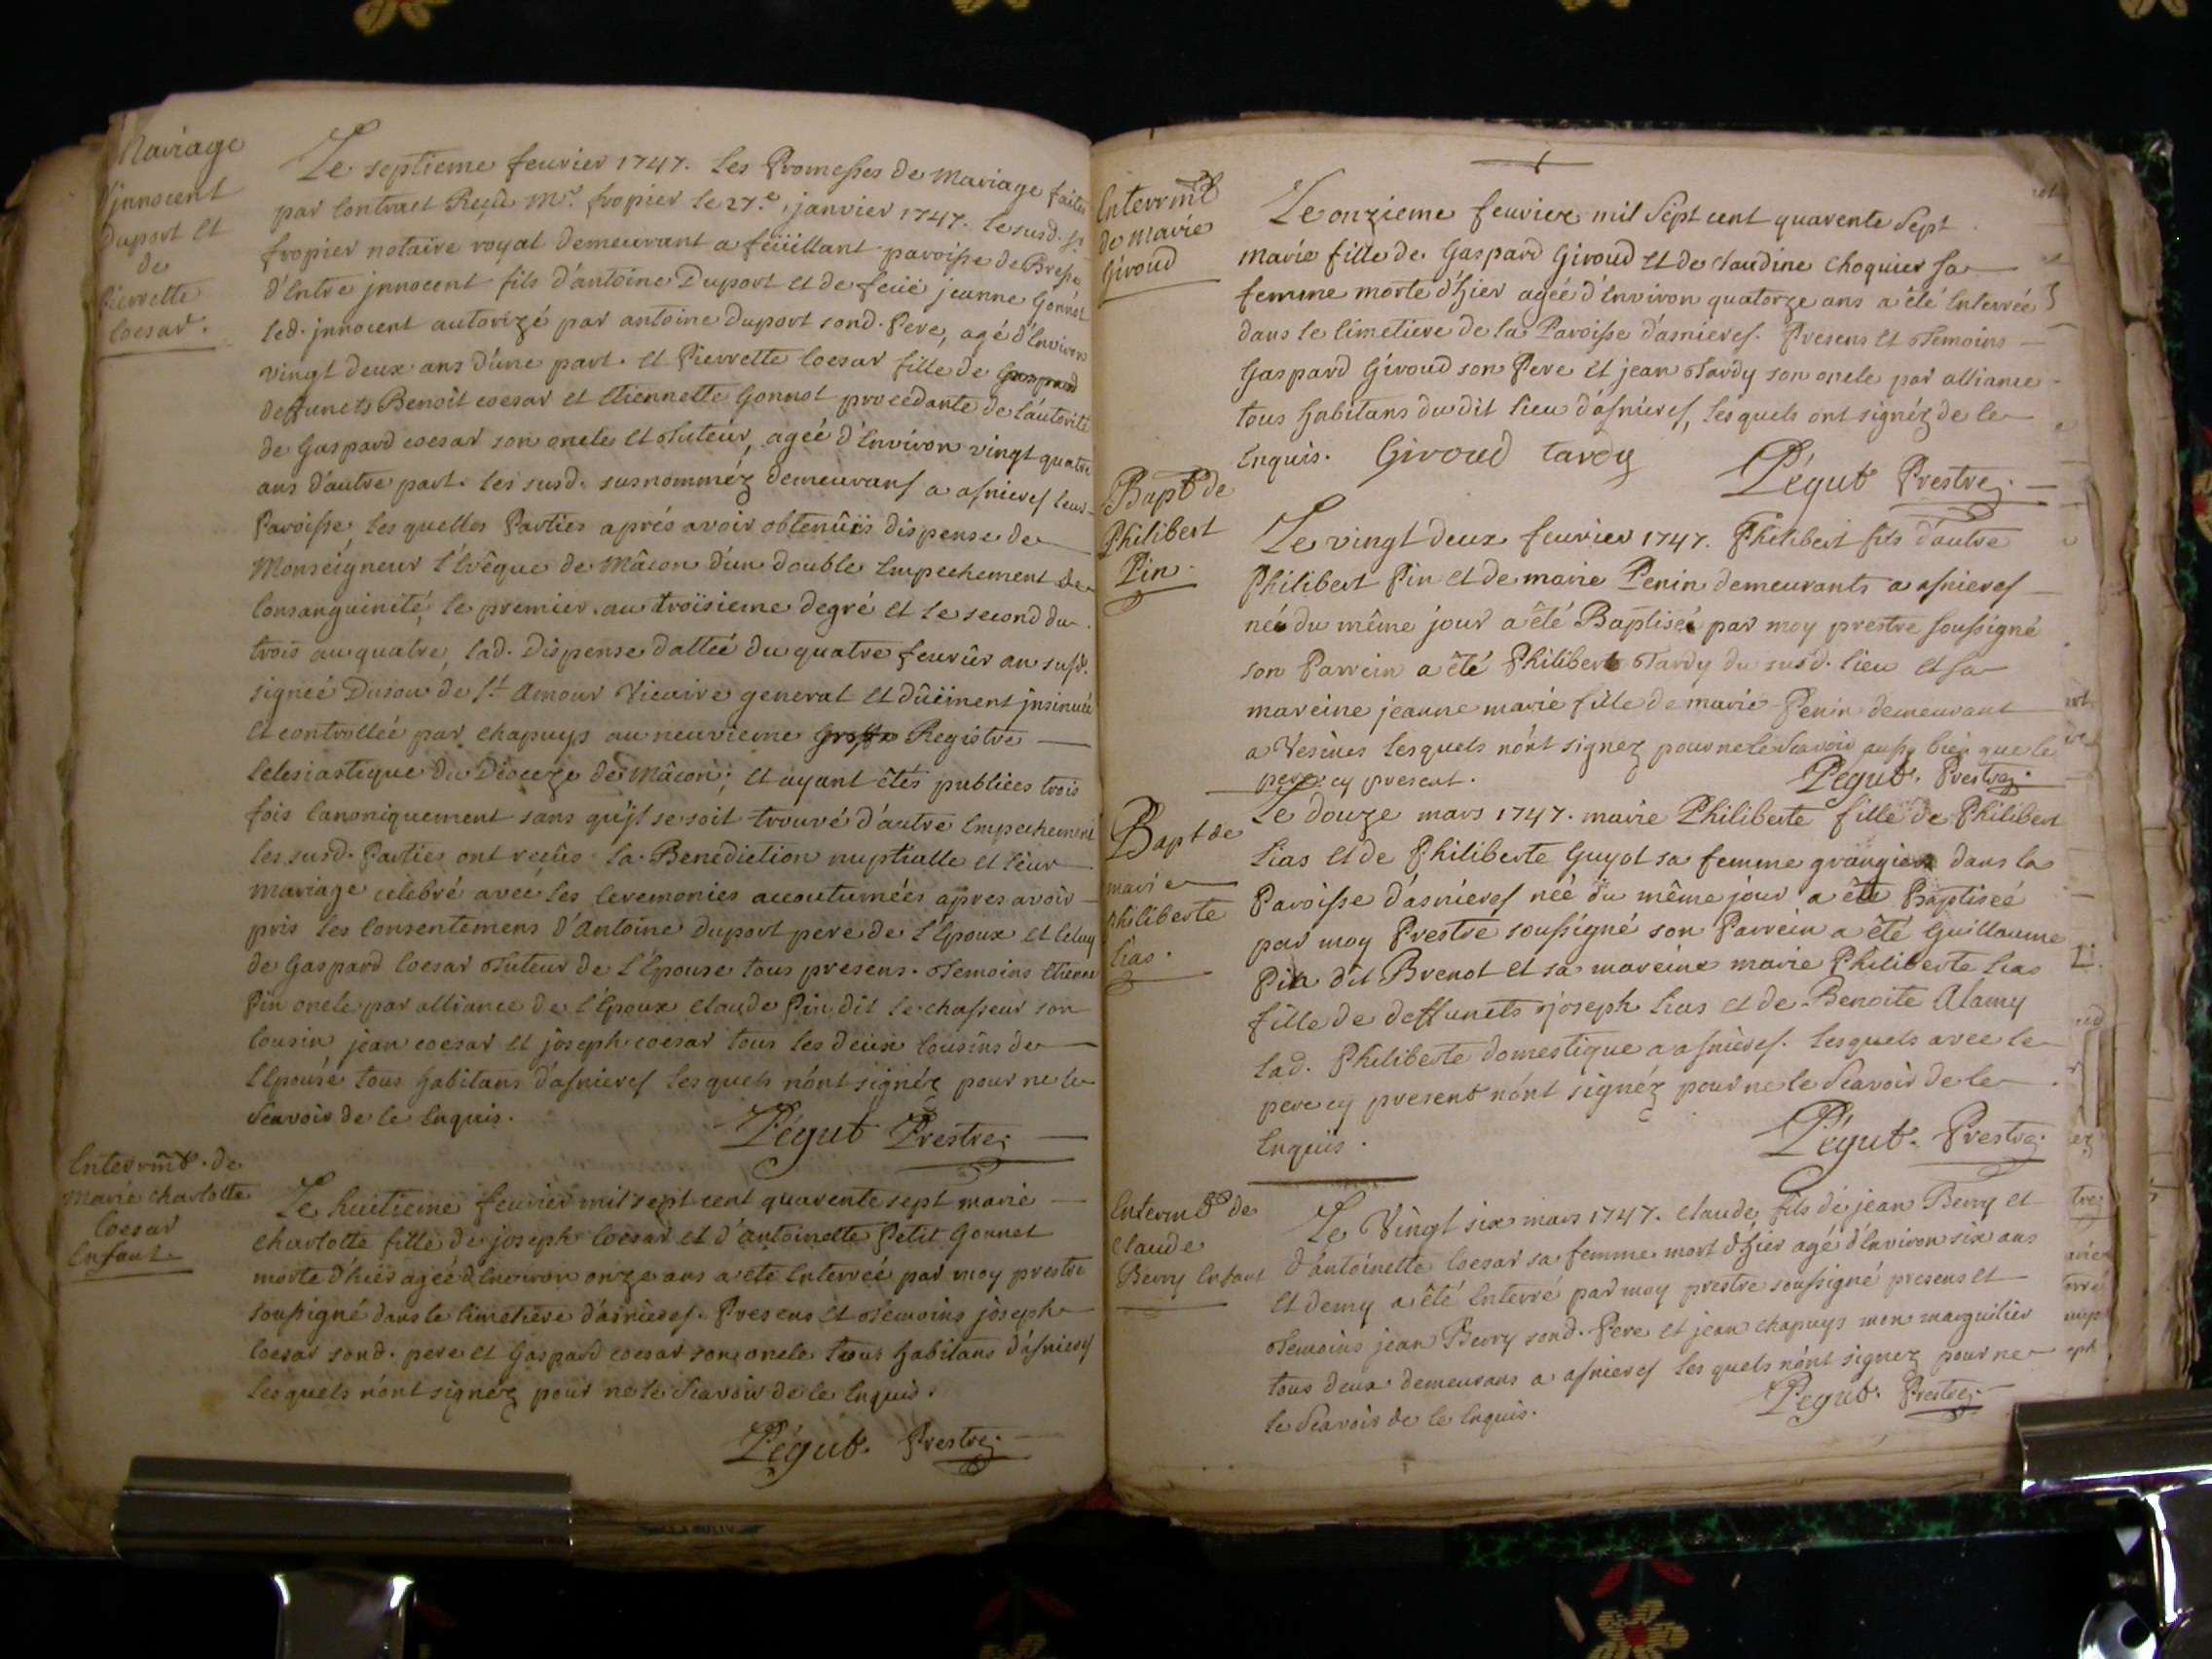 Mariage
d'jnnocent
Duport Et
de
Pierrette
Coesar.
Le septieme feurier 1747. Les Promesses de Mariage faites
par Contract Reçû Mr. fropier le 27.e janvier 1747. le susd. Sr.
fropier notaire royal demeurant a feüillant paroisse de Bresse
d'Entre jnnocent fils d'antoine Duport et de feüe jeanne Gonnot
led. jnnocent autorizé par antoine duport sond. Pere, agé d'Environ
vingt deux ans d'une part. et Pierrette Coesar fille de Gaspard
deffunets Benoît coesar et Etiennette Gonnot procedante de l'autorité
de Gaspard coesar son oncle et Tuteur, ageé d'Environ vingt quatre
ans d'autre part. les susd. susnomméz demeurans a asnieres leur
Paroisse, les quelles Parties aprés avoir obtenûës dispense de
Monseigneur l'Evêque de Mâcon d'un double Empechement de
Consanguinité, le premier au troisieme degré et le second du
trois au quatre, lad. Dispense datteé du quatre feurier an susd.
signeé Duson de St. Amour Vicaire general et dûëment jnsinuée
Et controlleé par Chapuys au neuvieme greffe Registre
Eclesiastique du Dioceze de Mâcon; et ayant êtés publieés trois
fois Canoniquement sans qu'jl se soit trouvé d'autre Empechement
les susd. Parties ont recûes la Benediction nuptialle et leur
mariage celebré avec les Ceremonies accoutumées apres avoir
pris les Consentemens d'Antoine duport pere de l'Epoux et Celuy
de Gaspard Coesar Tuteur de l'Epouse tous presens. Temoins Etienne
Pin oncle par alliance de l'Epoux Claude Pin dit le chasseur son
Cousin jean coesar et joseph coesar tous les deux Cousins de
l'Epouse tous habitans d'asnieres lesquels n'ont signéz pour ne le
Scavoir de ce Enquis.
Pégut Prestre.
Enterrmt. de
Marie Charlotte
Coesar
Enfant
Le huitieme feurier mil sept cent quarente sept marie
Charlotte fille de joseph Coesar et d'antoinette Petit Gonnet
morte d'hier ageé d'Environ onze ans a été Enterreé par moy prestre
soussigné dans le Cimetiere d'asnieres. Presens et Temoins joseph
Coesar sond. pere et Gaspard coesar son oncle tous habitans d'asnieres
lesquels n'ont signéz pour ne le Scavoir de ce Enquis.
Pégut. Prestre.
Enterrmt
de Marie
Giroud
Le onzieme feurier mil Sept cent quarente Sept
marie fille de Gaspard Giroud et de Claudine Choquier sa
femme morte d'hier ageé d'Environ quatorze ans a été Enterrée
dans le Cimetiere de la Paroisse d'asnieres. Presens et Temoins
Gaspard Giroud son Pere et jean Tardy son oncle par alliance
tous habitans du dit lieu d'asnieres, lesquels ont signéz de ce
Enquis. Giroud tardy
Pégut Prestre.
Bapt de
Philibert
Pin.
Le vingt deux feurier 1747. Philibert fils d'autre
Philibert Pin et de marie Penin demeurants a asnieres
né du même jour a été Baptisé par moy prestre soussigné
son Parrein a été Philibert Tardy du susd. lieu et sa
mareine jeanne marie fille de marie Penin demeurant
a Vesines lesquels n'ont signez pour ne le Scavoir aussy bien que le
pere cy present.
Pegut. Prestre.
Bapt de
marie
philiberte
Lias.
Le douze mars 1747. marie Philiberte fille de Philibert
Lias et de Philiberte Guyot sa femme grangiers dans la
Paroisse d'asnieres neé du même jour a été Baptiseé
par moy Prestre soussigné son Parrein a été Guillaume
Pin dit Brenot et sa mareine marie Philiberte Lias
fille de deffunets joseph Lias et de Benoite Alamy
Lad. Philiberte domestique a asnieres. lesquels avec le
pere cy present n'ont signéz pour ne le Scavoir de ce
Enquis.
Pégut. Prestre.
Enterrmt de
Claude
Berry Enfant
Le Vingt six mars 1747. Claude fils de jean Berry et
d'antoinette Coesar sa femme mort d'hier agé d'Environ six ans
et demy a été Enterré par moy prestre soussigné presens et
Temoins jean Berry sond. Pere et jean Chapuys mon marguilier
tous deux demeurans a asnieres lesquels n'ont signez pour ne
le Scavoir de ce Enquis.
Pegut. Prestre.